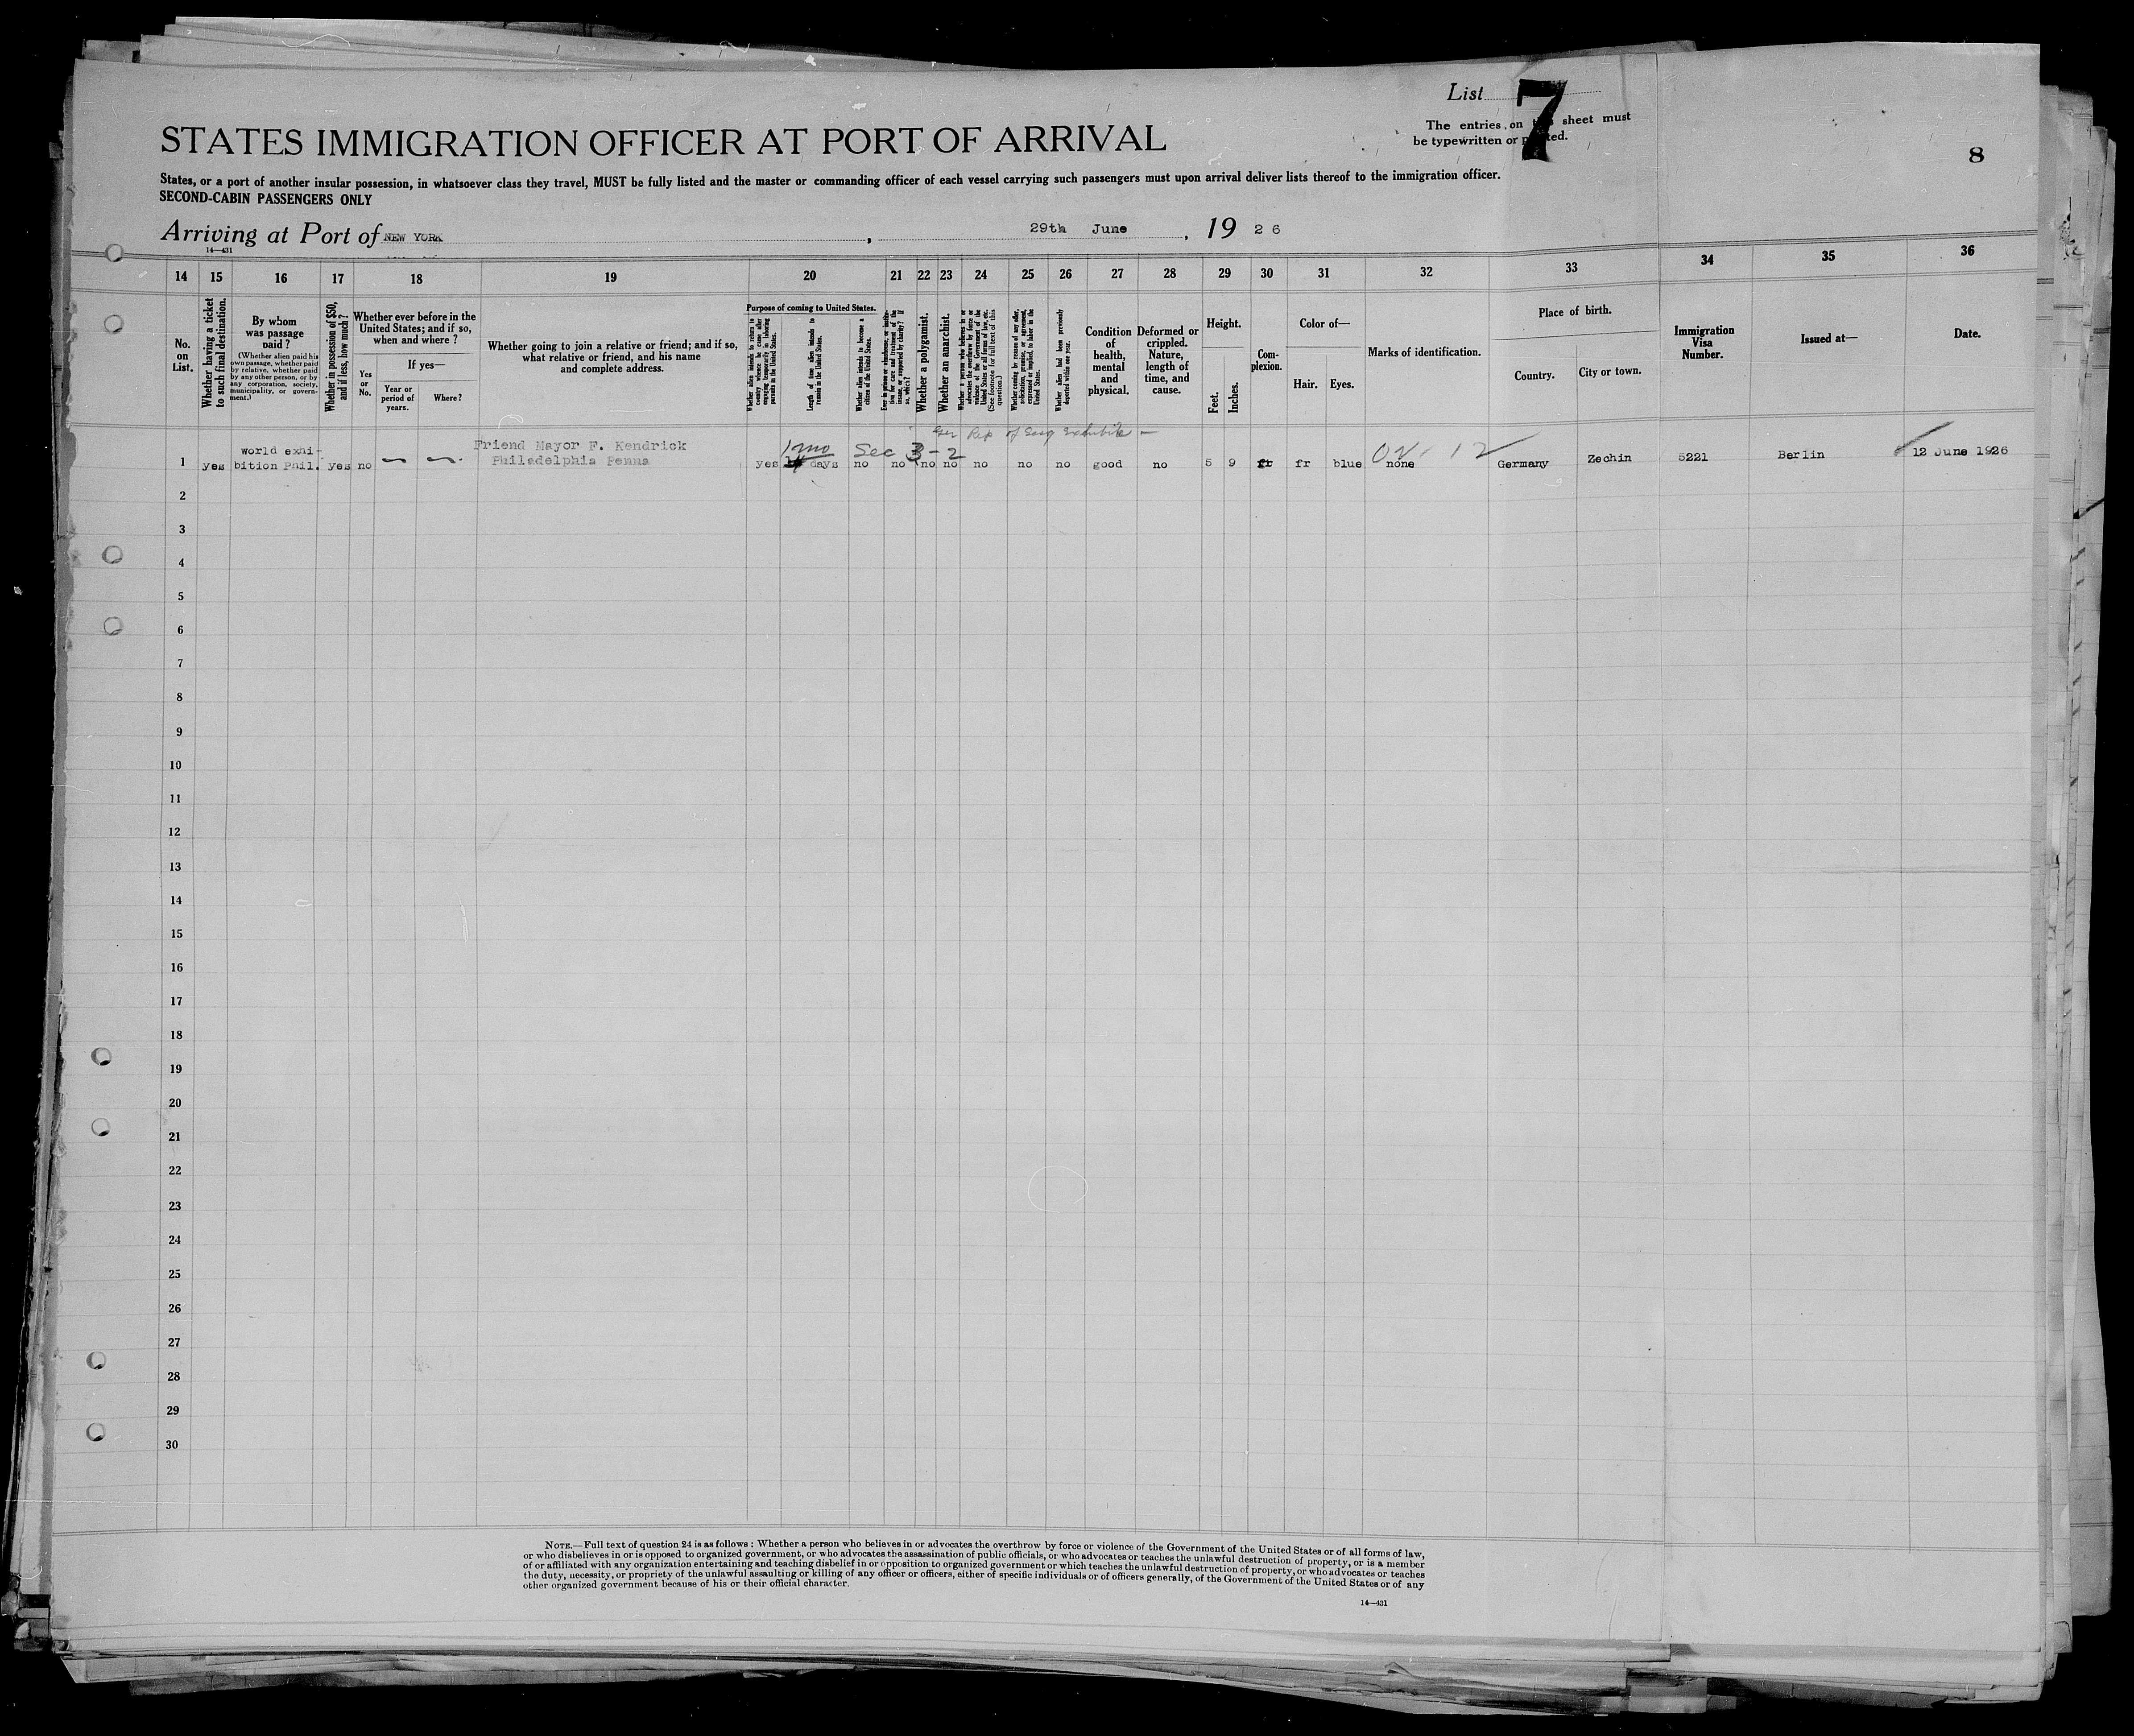 List 7
The entries on this sheet must
be typewritten or printed.
8
STATES IMMIGRATION OFFICER AT PORT OF ARRIVAL
States, or a port of another insular possession, in whatsoever class they travel, MUST be fully listed and the master or commanding officer of each vessel carrying such passengers must upon arrival deliver lists thereof to the immigration officer.
SECOND-CABIN PASSENGERS ONLY
Arriving at Port of NEW YORK, 29th June, 19 2 6
14—431
14 15 16 17 18 19 20 21 22 23 24 25 26 27 28 29 30 31 32 33 34 35 36
No. on List.
Whether having a ticket to such final destination.
By whom was passage paid?
(Whether alien paid his own passage, whether paid by relative, whether paid by any other person, or by any corporation, society, municipality, or government.)
Whether in possession of $50, and if less, how much?
Whether ever before in the United States; and if so, when and where?
Yes or No.
If yes—
Year or period of years.
Where?
Whether going to join a relative or friend; and if so, what relative or friend, and his name and complete address.
Purpose of coming to United States.
Whether alien intends to return to country whence he came after engaging temporarily in laboring pursuits in the United States.
Length of time alien intends to remain in the United States.
Whether alien intends to become a citizen of the United States.
Ever in prison or almshouse, or institution for care and treatment of the insane, or supported by charity? If so, which?
Whether a polygamist.
Whether an anarchist.
Whether a person who believes in or advocates the overthrow by force or violence of the Government of the United States or all forms of law, etc. (See footnote for full text of this question.)
Whether coming by reason of any offer, solicitation, promise, or agreement, expressed or implied, to labor in the United States.
Whether alien had been previously deported within one year.
Condition of health, mental and physical.
Deformed or crippled. Nature, length of time, and cause.
Height.
Feet.
Inches.
Complexion.
Color of—
Hair.
Eyes.
Marks of identification.
Place of birth.
Country.
City or town.
Immigration Visa Number.
Issued at—
Date.
Ger Rep of Sesq Exhibit —
1 mo Sec 3-2
1 yes world exhi-bition Phil. yes no — — Friend Mayor F. Kendrick Philadelphia Penna yes days no no no no no no no good no 5 9 fr fr blue none Germany Zechin 5221 Berlin 12 June 1926
2
3
4
5
6
7
8
9
10
11
12
13
14
15
16
17
18
19
20
21
22
23
24
25
26
27
28
29
30
NOTE.—Full text of question 24 is as follows: Whether a person who believes in or advocates the overthrow by force or violence of the Government of the United States or of all forms of law,
or who disbelieves in or is opposed to organized government, or who advocates the assassination of public officials, or who advocates or teaches the unlawful destruction of property, or is a member
of or affiliated with any organization entertaining and teaching disbelief in or opposition to organized government or which teaches the unlawful destruction of property, or who advocates or teaches
the duty, necessity, or propriety of the unlawful assaulting or killing of any officer or officers, either of specific individuals or of officers generally, of the Government of the United States or of any
other organized government because of his or their official character.
14—431